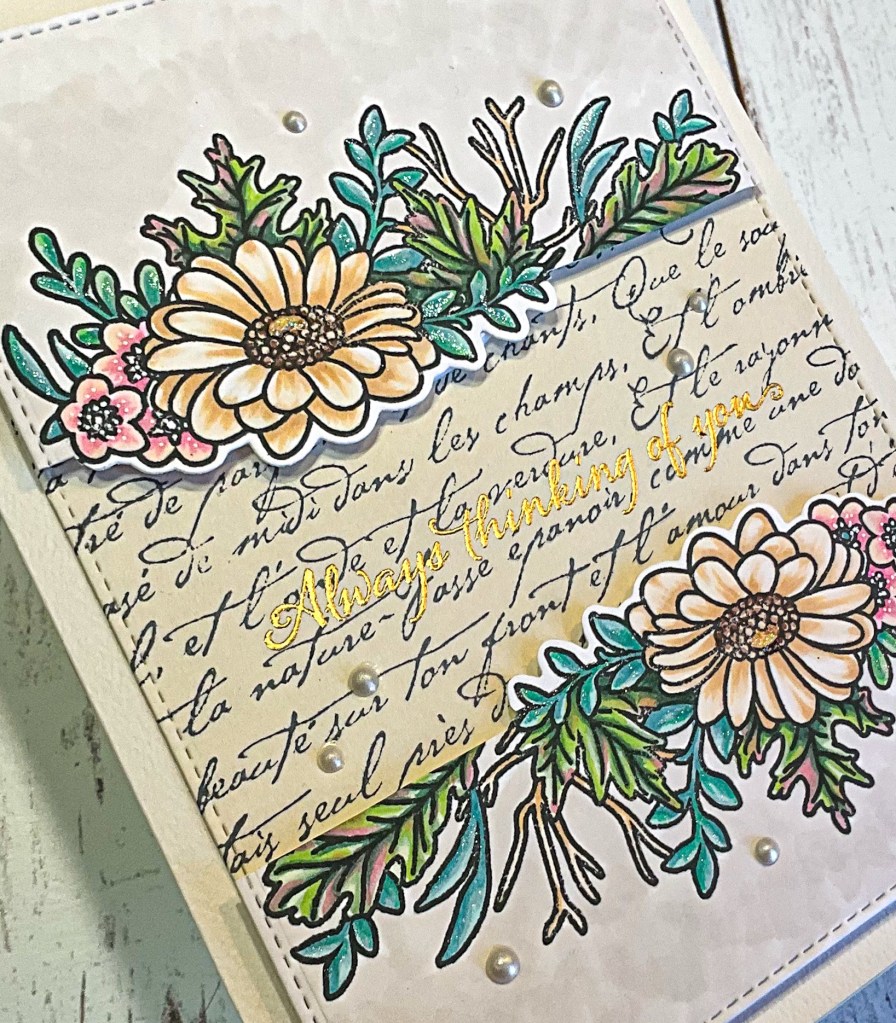 tré de par ue chants, Que le sou
sé de midi dans les champs, Et l'ombre
et l'onde et la verdure, Et le rayonn
Always thinking of you
la nature- passe epanoir, comme une do
beauté sur ton front et l'amour dans ton
tais seul près d